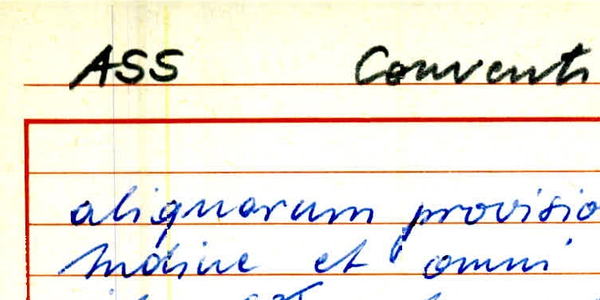 ASS Conventi
aliquarum provisio
et omni